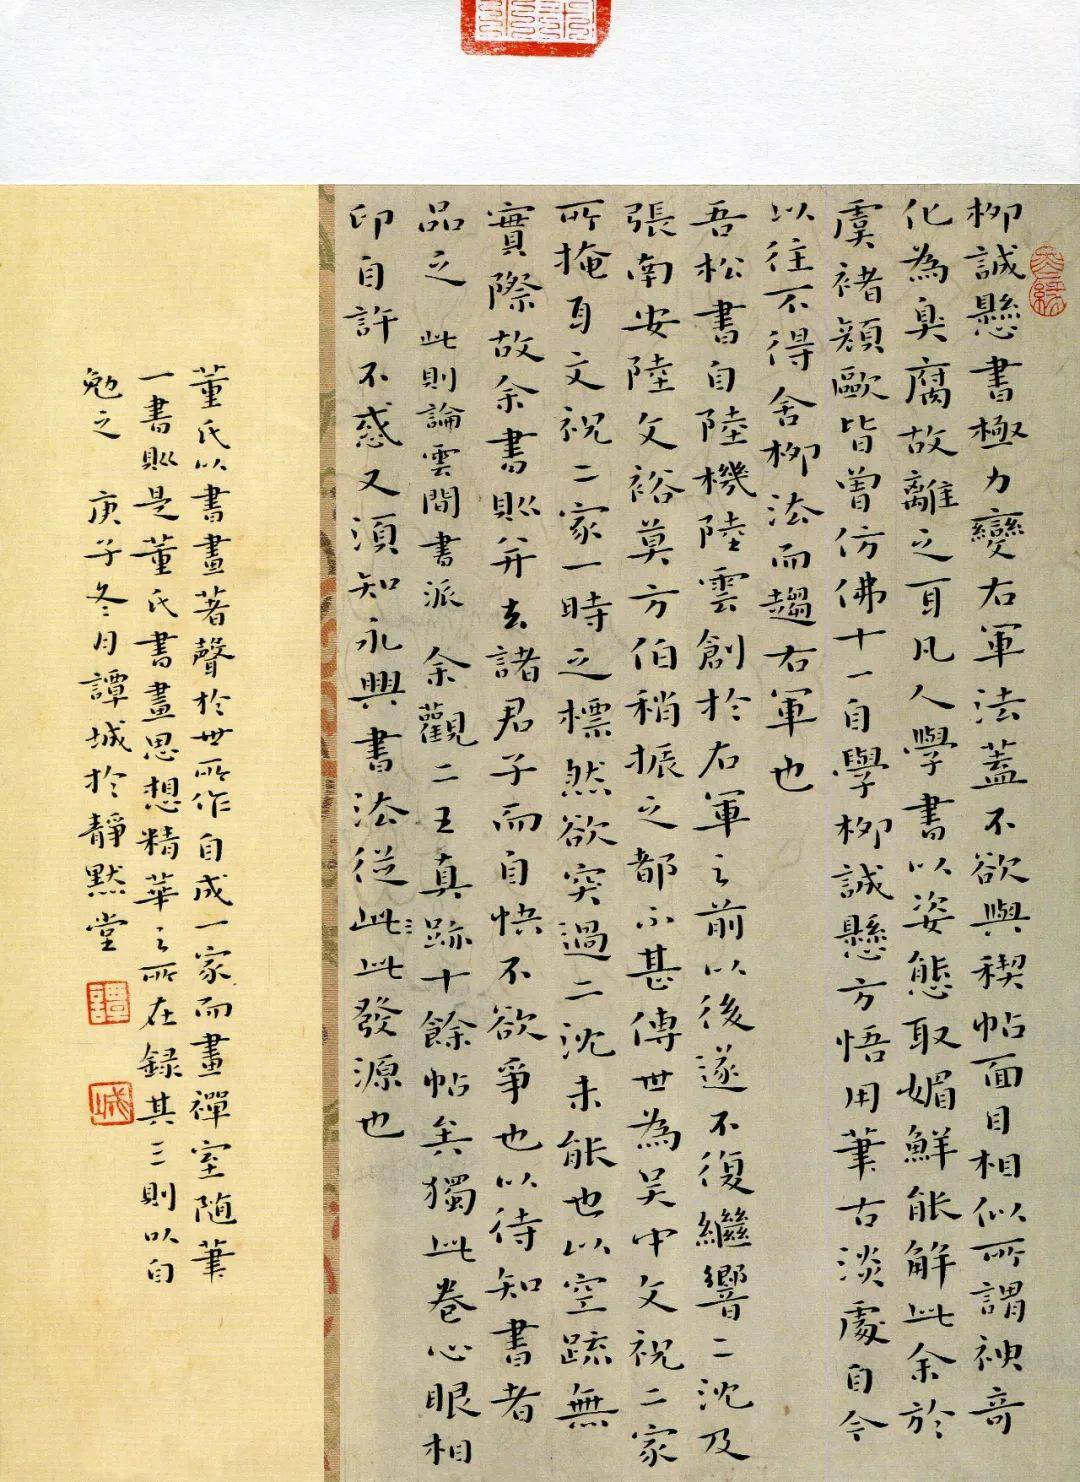 柳誠懸書極力變右軍法蓋不欲與稧帖面目相似所謂神奇
化為臭腐故離之耳凡人學書以姿態取媚鮮能解此余於
虞褚顏歐皆曾仿佛十一自學柳誠懸方悟用筆古淡處自今
以往不得舍柳法而趨右軍也
吾松書自陸機陸雲創於右軍之前以後遂不復繼響二沈及
張南安陸文裕莫方伯稍振之都不甚傳世為吳中文祝二家
所掩耳文祝二家一時之標然欲突過二沈未能也以空疏無
實際故余書則并去諸君子而自快不欲爭也以待知書者
品之 此則論雲間書派 余觀二王真跡十餘帖矣獨此卷心眼相
印自許不惑又須知永興書法從此此發源也
董氏以書畫著聲於世所作自成一家而畫禪室随筆
一書則是董氏書畫思想精華之所在録其三則以自
勉之 庚子冬月譚城於靜默堂
譚
城